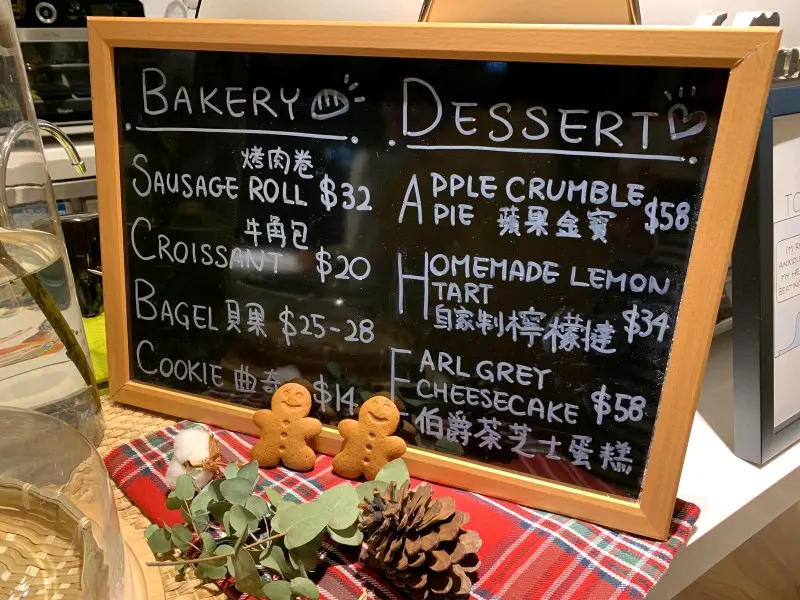 BAKERY
烤肉卷
SAUSAGE ROLL $32
牛角包
CROISSANT $20
BAGEL 貝果 $25-28
COOKIE 曲奇 $14
DESSERT
APPLE CRUMBLE
PIE 蘋果金寶 $58
HOMEMADE LEMON
TART
自家制檸檬撻 $34
EARL GREY
CHEESECAKE $58
伯爵茶芝士蛋糕
TO
I'M
ANXIOU
MY HE
BEATIN